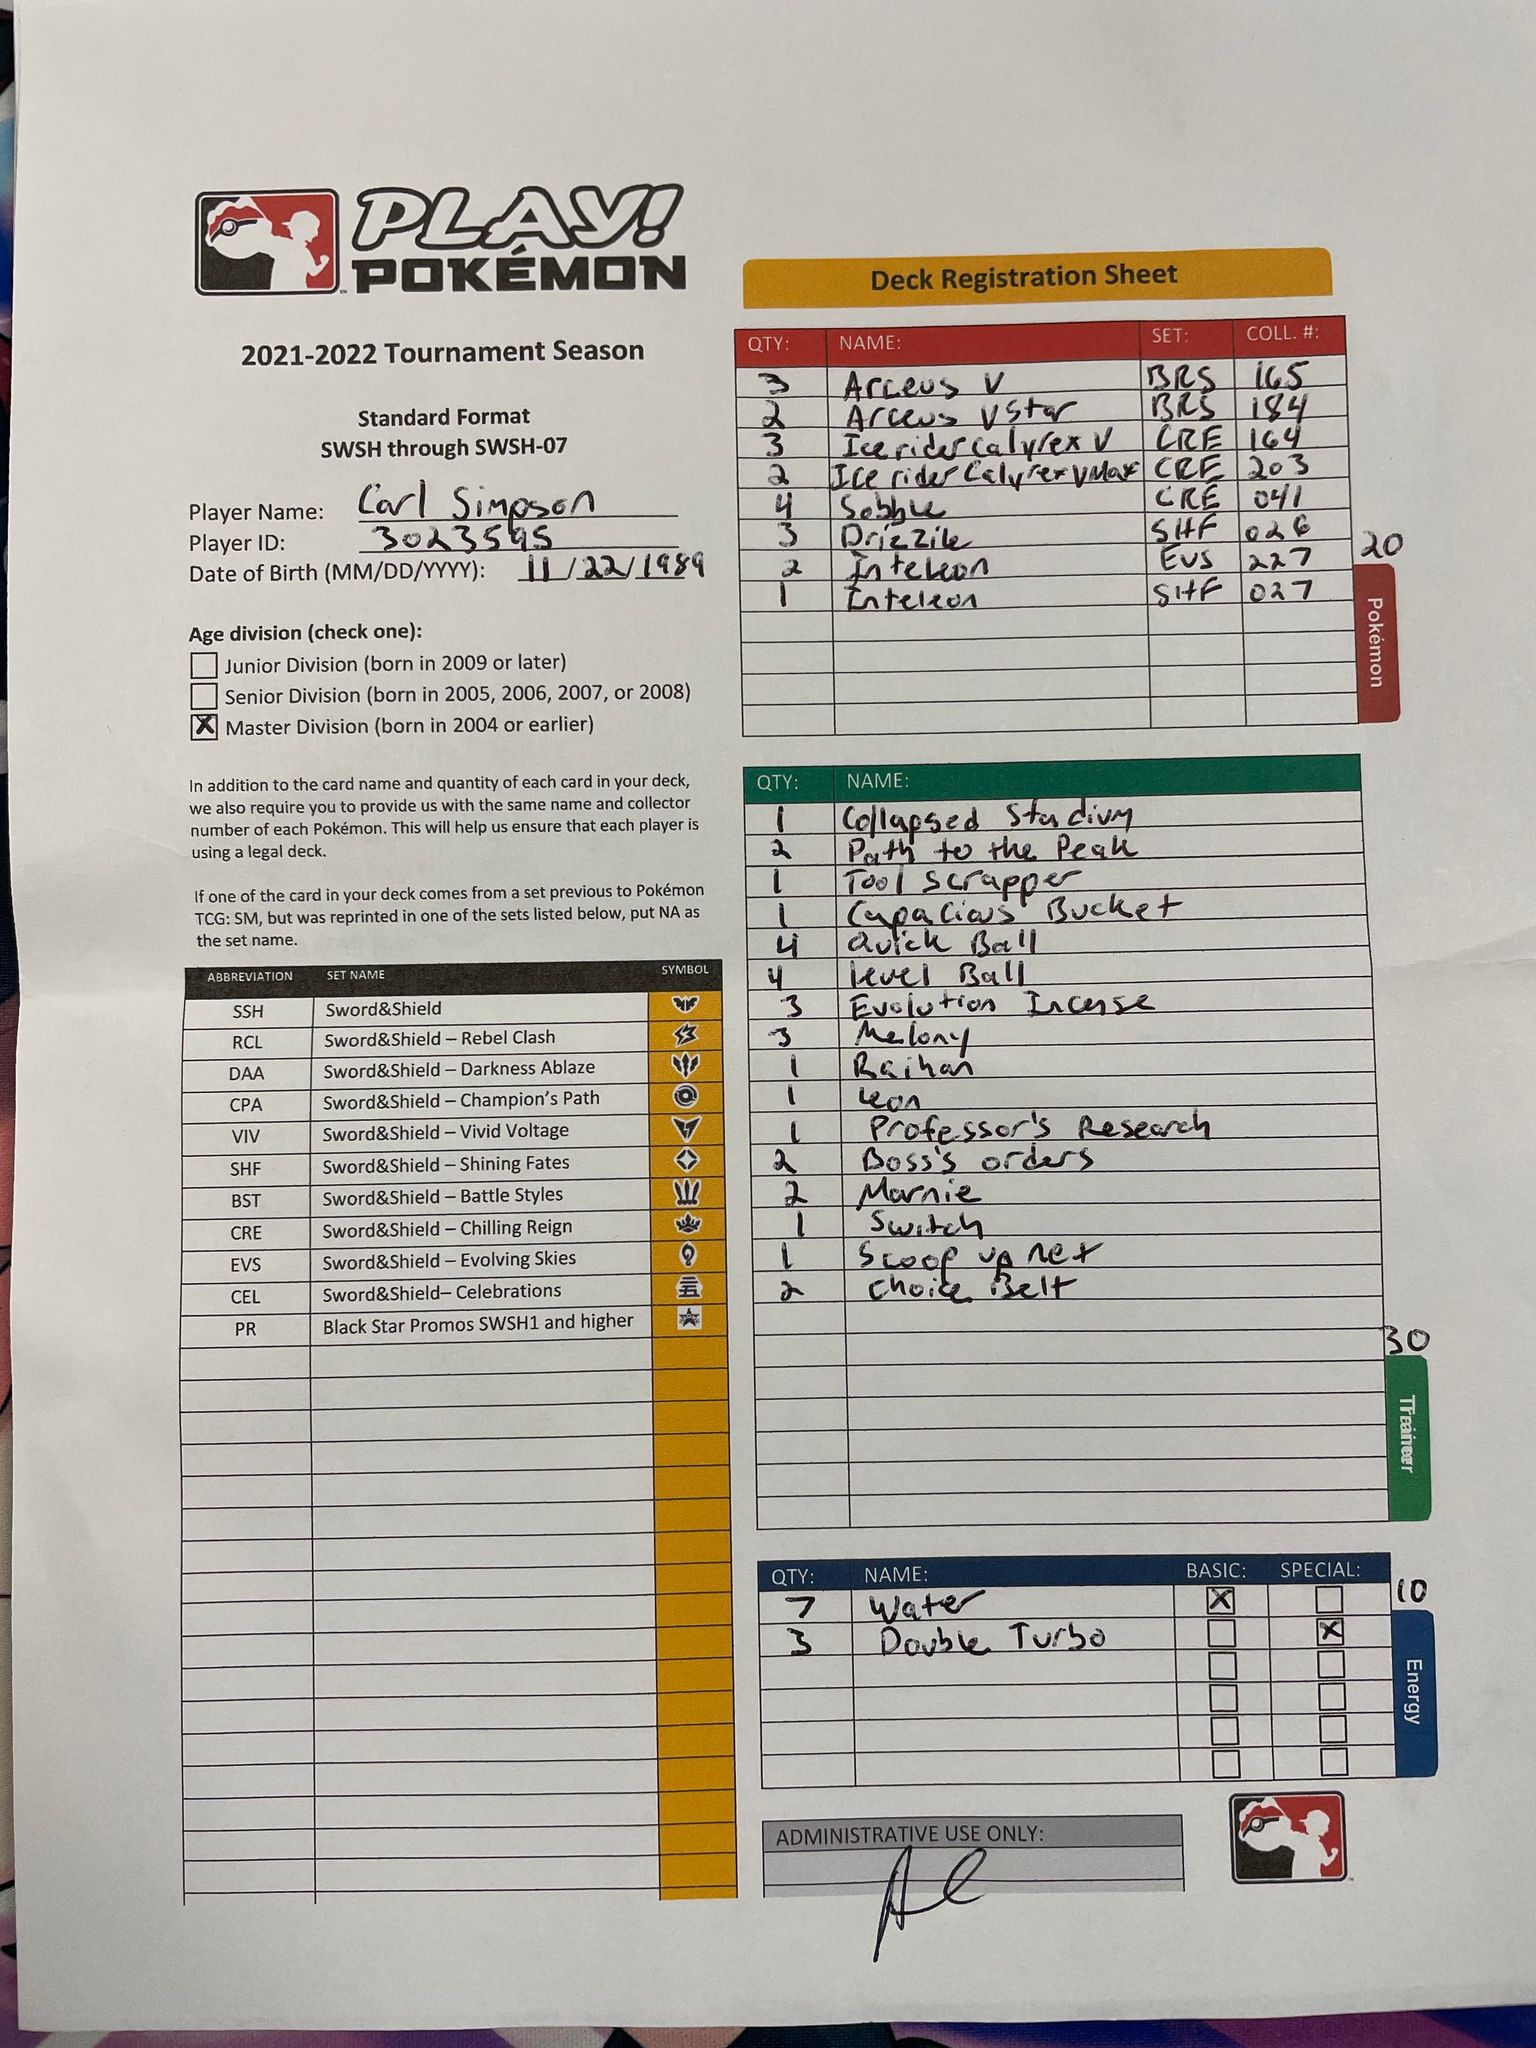 PLAY!
POKÉMON
2021-2022 Tournament Season
Standard Format
SWSH through SWSH-07
Player Name: Carl Simpson
Player ID: 3023595
Date of Birth (MM/DD/YYYY): 11/22/1989
Age division (check one):
Junior Division (born in 2009 or later)
Senior Division (born in 2005, 2006, 2007, or 2008)
X Master Division (born in 2004 or earlier)
In addition to the card name and quantity of each card in your deck,
we also require you to provide us with the same name and collector
number of each Pokémon. This will help us ensure that each player is
using a legal deck.
If one of the card in your deck comes from a set previous to Pokémon
TCG: SM, but was reprinted in one of the sets listed below, put NA as
the set name.
ABBREVIATION SET NAME SYMBOL
SSH Sword&Shield
RCL Sword&Shield – Rebel Clash
DAA Sword&Shield – Darkness Ablaze
CPA Sword&Shield – Champion's Path
VIV Sword&Shield – Vivid Voltage
SHF Sword&Shield – Shining Fates
BST Sword&Shield – Battle Styles
CRE Sword&Shield – Chilling Reign
EVS Sword&Shield – Evolving Skies
CEL Sword&Shield– Celebrations
PR Black Star Promos SWSH1 and higher
Deck Registration Sheet
QTY: NAME: SET: COLL. #:
3 Arceus V BRS 165
2 Arceus VStar BRS 184
3 Ice rider Calyrex V CRE 164
2 Ice rider Calyrex VMax CRE 203
4 Sobble CRE 041
3 Drizzile SHF 026
2 Inteleon EVS 227
1 Inteleon SHF 027
20
Pokémon
QTY: NAME:
1 Collapsed Stadium
2 Path to the Peak
1 Tool Scrapper
1 Capacious Bucket
4 Quick Ball
4 level Ball
3 Evolution Incense
3 Melony
1 Raihan
1 Leon
1 Professor's Research
2 Boss's orders
2 Marnie
1 Switch
1 Scoop up net
2 Choice Belt
30
Trainer
QTY: NAME: BASIC: SPECIAL:
7 Water X
3 Double Turbo X
10
Energy
ADMINISTRATIVE USE ONLY: